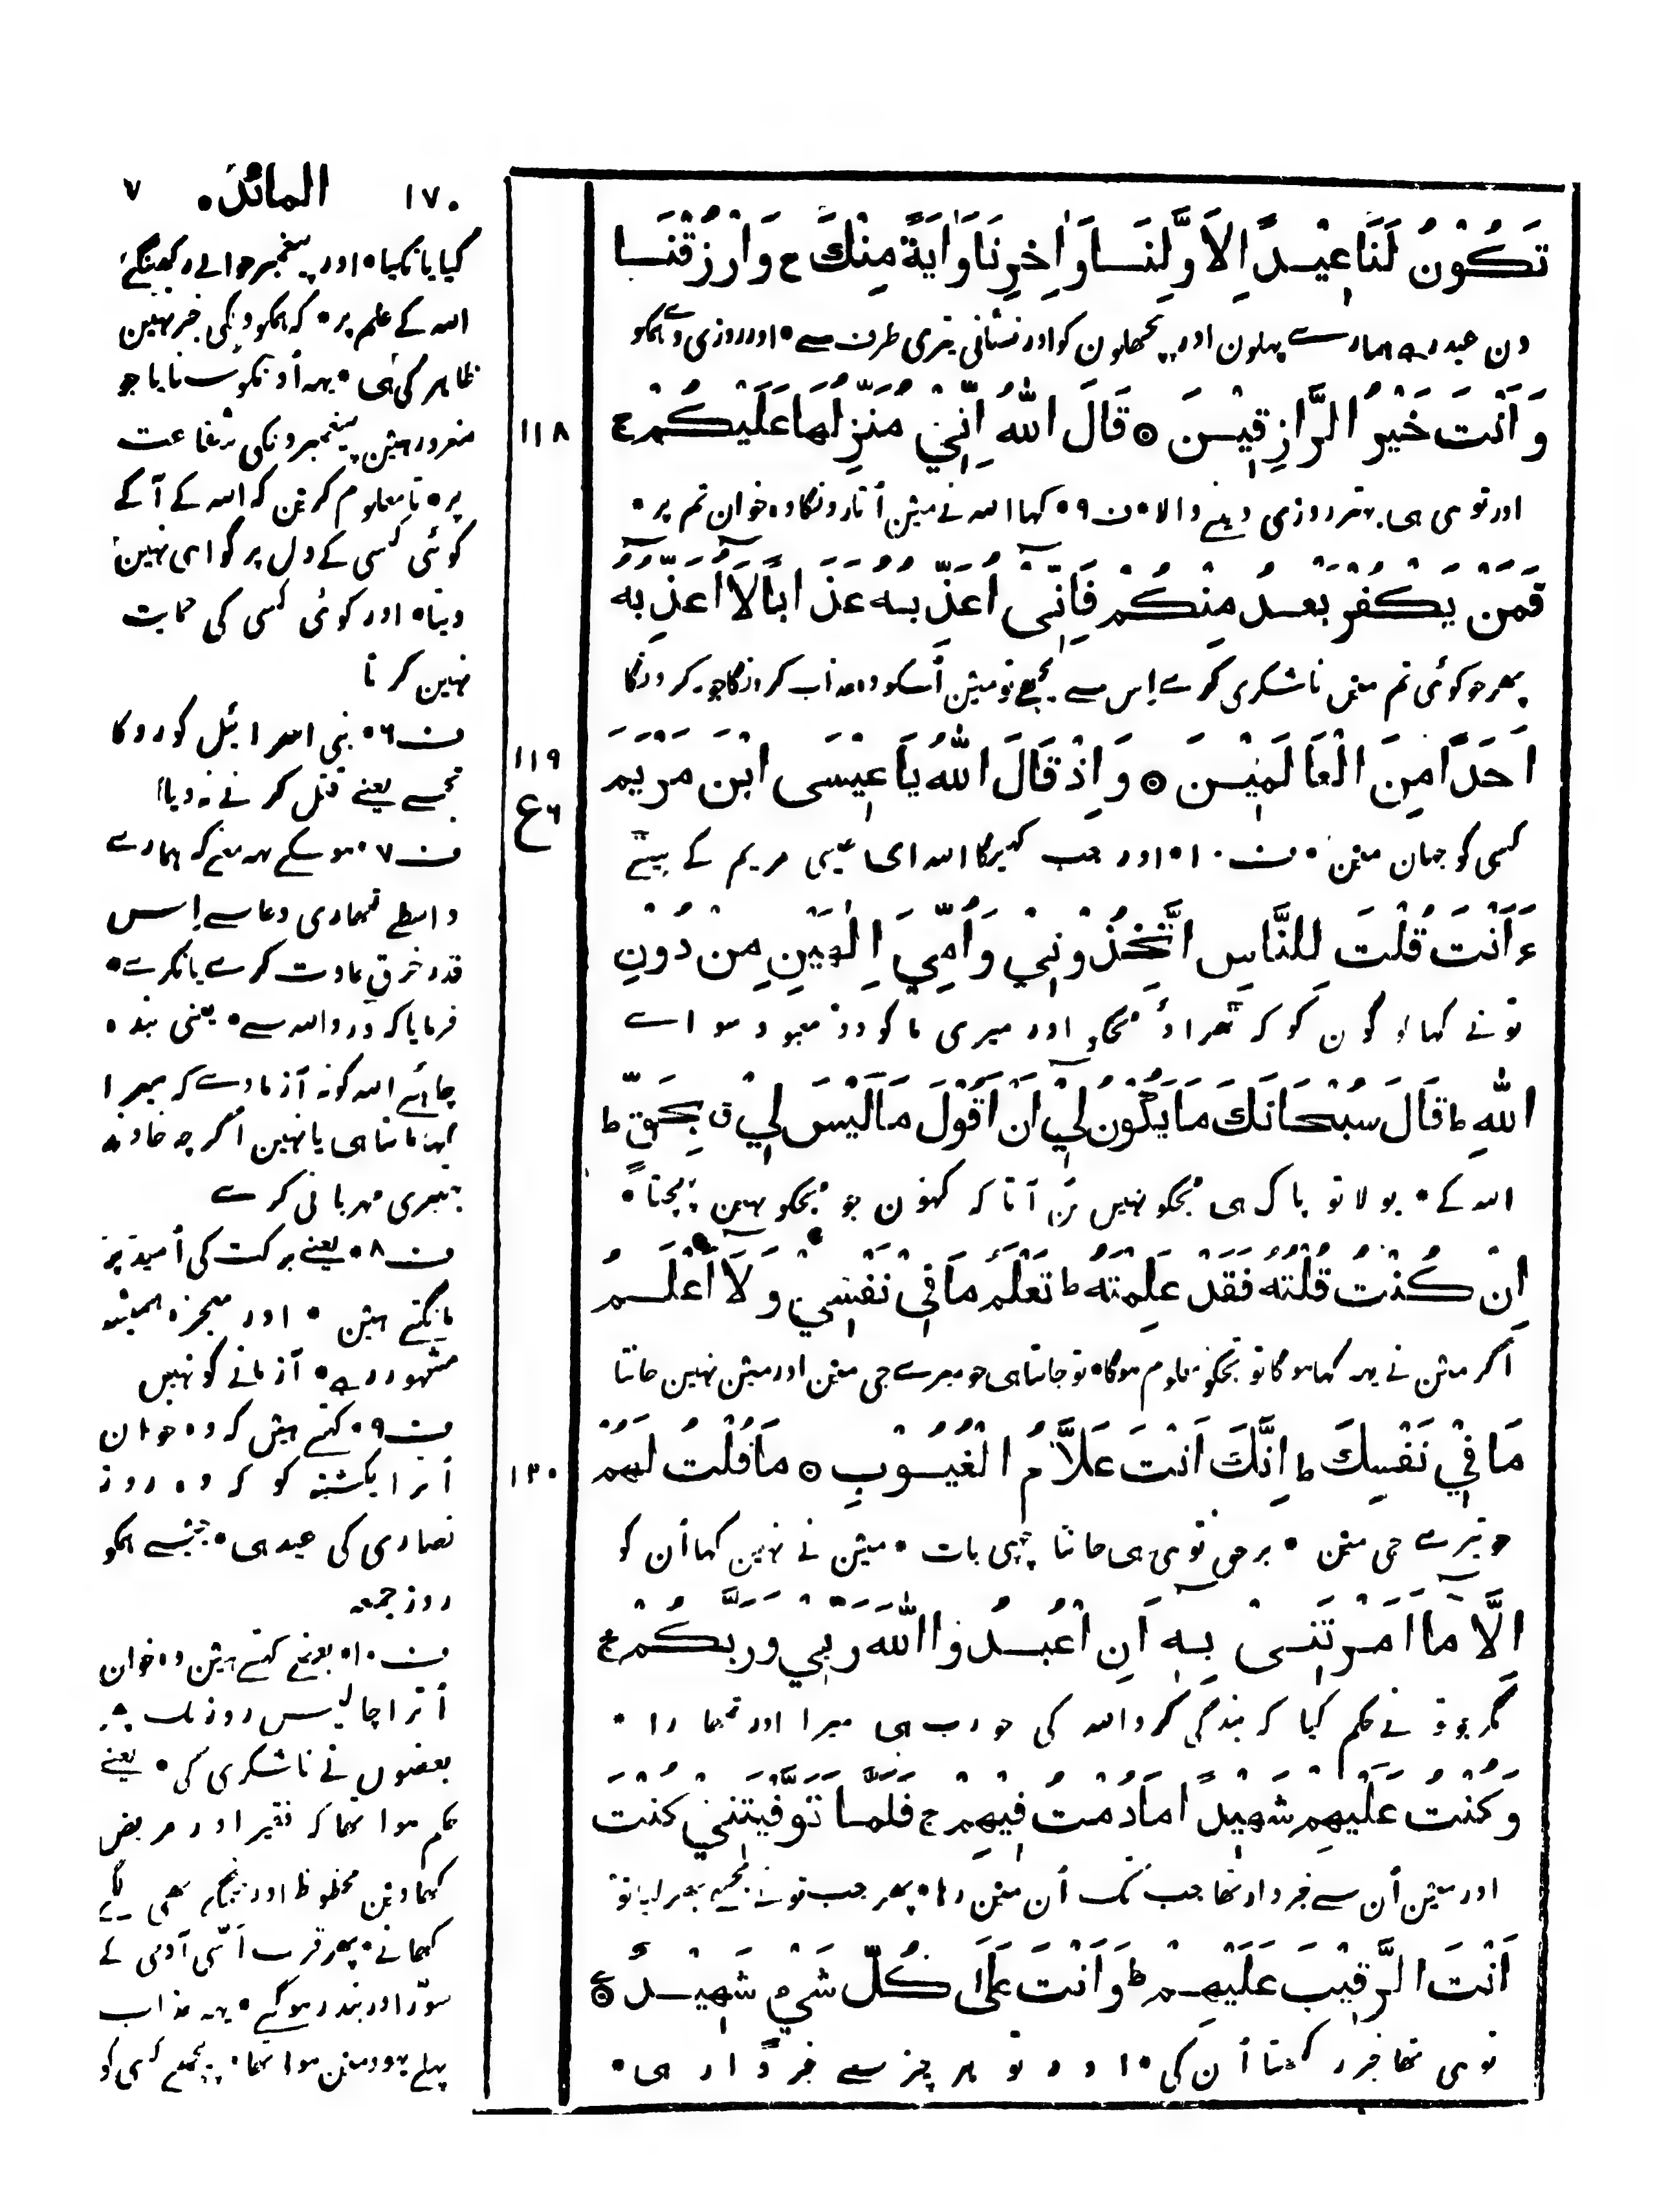 ١٧٠ المائدة ٧
تَكُوْنُ لَنَا عِيْدًا لِاَوَّلِنَا وَاٰخِرِنَا وَاٰيَةً مِنْكَ ج وَارْزُقْنَا
دن عید رہے ہمارے پہلون اور پچھلون کو اور نشانی تیری طرف سے • اور روزی دے ہمکو
وَاَنْتَ خَيْرُ الرَّازِقِيْنَ ۞ قَالَ اللّٰهُ اِنِّيْ مُنَزِّلُهَا عَلَيْكُمْ ج
١١٨
اور تو ہی ہی بہتر روزی دینے والا • ف ٩ • کہا اللہ نے مین اُتارونگا وہ خوان تم پر •
فَمَنْ يَكْفُرْ بَعْدُ مِنْكُمْ فَاِنِّيْ اُعَذِّبُهُ عَذَابًا لَا اُعَذِّبُهُ
پھر جو کوئی تم مین ناشکری کرے اِس سے پیچھے تو مین اُسکو وہ عذاب کرونگا جو نہ کرونگا
اَحَدًا مِنَ الْعَالَمِيْنَ ۞ وَاِذْ قَالَ اللّٰهُ يَا عِيْسَى ابْنَ مَرْيَمَ
١١٩
ع ٦
کسی کو جہان مین • ف ١٠ • اور جب کہیگا اللہ ای عیسی مریم کے بیٹے
ءَاَنْتَ قُلْتَ لِلنَّاسِ اتَّخِذُوْنِيْ وَاُمِّيَ اِلٰهَيْنِ مِنْ دُوْنِ
تو نے کہا لوگون کو کہ ٹھہراؤ مجکو اور میری ما کو دو معبود سوائے
اللّٰهِ ط قَالَ سُبْحَانَكَ مَا يَكُوْنُ لِيْ اَنْ اَقُوْلَ مَا لَيْسَ لِيْ ق بِحَقٍّ ط
اللہ کے • بولا تو پاک ہی مجکو نہیں بن آتا کہ کہون جو مجکو نہین پہنچتا •
اِنْ كُنْتُ قُلْتُهُ فَقَدْ عَلِمْتَهُ ط تَعْلَمُ مَا فِيْ نَفْسِيْ وَلَا اَعْلَمُ
اگر مین نے یہہ کہا ہوگا تو تجکو معلوم ہوگا • تو جانتا ہی جو میرے جی مین اور مین نہین جانتا
مَا فِيْ نَفْسِكَ ط اِنَّكَ اَنْتَ عَلَّامُ الْغُيُوْبِ ۞ مَا قُلْتُ لَهُمْ
١٢٠
جو تیرے جی مین • برحق تو ہی ہی جانتا چھپی بات • مین نے نہین کہا اُن کو
اِلَّا مَا اَمَرْتَنِيْ بِهٖ اَنِ اعْبُدُوا اللّٰهَ رَبِّيْ وَرَبَّكُمْ ج
مگر جو تو نے حکم کیا کہ بندگی کرو اللہ کی جو رب ہی میرا اور تمھارا •
وَكُنْتُ عَلَيْهِمْ شَهِيْدًا مَا دُمْتُ فِيْهِمْ ج فَلَمَّا تَوَفَّيْتَنِيْ كُنْتَ
اور مین اُن سے خبردار تھا جب تک اُن مین رہا • پھر جب تو نے مجھے بھر لیا تو
اَنْتَ الرَّقِيْبَ عَلَيْهِمْ ط وَاَنْتَ عَلَى كُلِّ شَيْءٍ شَهِيْدٌ ۞
تو ہی تھا خبر رکھتا اُن کی • اور تو ہر چیز سے خبردار ہی •
کیا یا نکیا • اور پیغمبر حوالے رکھینگے
اللہ کے علم پر • کہ ہمکو دلکی خبر نہین
ظاہر کی ہی • یہہ اُونکو سنایا جو
مغرور ہین پیغمبرونکی شفاعت
پر • تا معلوم کرین کہ اللہ کے آگے
کوئی کسی کے دل پر گواہی نہین
دیتا • اور کوئی کسی کی حمایت
نہین کرتا
ف ٦ • بنی اسرائیل کو روکا
تجسے یعنے قتل کرنے نہ دیا
ف ٧ • ہو سکے یہہ معنے کہ ہمارے
واسطے تمہاری دعا سے اِس
قدر خرق عادت کرے یا نکرے •
فرمایا کہ ڈرو اللہ سے • یعنی بندہ
چاہئے اللہ کو نہ آزماوے کہ میرا
کہنا مانتا ہی یا نہین اگرچہ خاوند
بہتیری مہربانی کرے
ف ٨ • یعنے برکت کی اُمید پر
مانگتے ہین • اور معجزہ ہمیشہ
مشہور رہے • آزمانے کو نہیں
ف ٩ • کہتے ہین کہ وہ خوان
اُترا یکشنبہ کو کہ وہ روز
نصاری کی عید ہی • جیسے ہمکو
روز جمعہ
ف ١٠ • بعضے کہتے ہین وہ خوان
اُترا چالیس روز تک پھر
بعضوں نے ناشکری کی • یعنے
حکم ہوا تھا کہ فقیر اور مریض
کھاوین محظوظ اور چنگے بھی لگے
کھانے • پھر قریب اَسّی آدمی کے
سوٗر اور بندر ہو گئے • یہہ عذاب
پہلے یہود مین ہوا تھا • پیچھے کسی کو